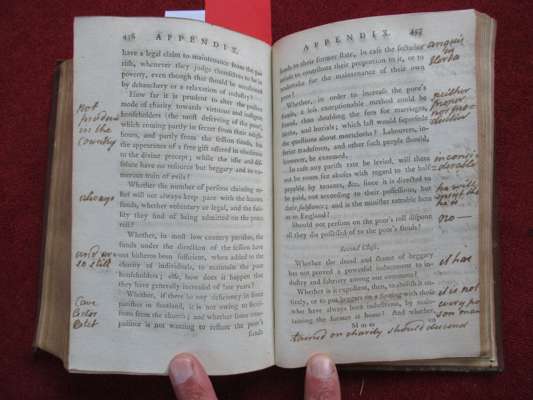 456 APPENDIX.
have a legal claim to maintenance from the pa-
rish, whenever they judge themselves to be in
poverty, even though that should be occasioned
by debauchery or a relaxation of industry?
How far it is prudent to alter the present
mode of charity towards virtuous and indigent
householders (the most deserving of the poor)
which coming partly in secret from their neigh-
bours, and partly from the session funds, has
the appearance of a free gift offered in obedience
to the divine precept; while the idle and dis-
solute have no resource but beggary and its
train of evils?
Whether the number of persons claiming re-
lief will not always keep pace with the known
funds, whether voluntary or legal, and the faci-
lity they find of being admitted on the poor's
roll?
Whether, in most low country parishes, the
funds under the direction of the session have
not hitherto been sufficient, when added to the
charity of individuals, to maintain the poor
householders; else, how does it happen that
they have generally increased of late years?
Whether, if there be any deficiency in some
parishes in Scotland, it is not owing to seces-
sions from the church; and whether some com-
pulsitor is not wanting to restore the poor's
funds
Not
in the
country
always
and are
so still
APPENDIX. 457
funds to their former state, in case the sectaries
refuse to contribute their proportion to it, or to
undertake for the maintenance of their own
poor?
Whether, in order to increase the poor's
funds, a less exceptionable method could be
found, than doubling the fees for marriages,
births, and burials; which last would supersede
the questions about mortcloths? Labourers, in-
ferior tradesmen, and other such people should,
however, be exempted.
In case any parish rate be levied, will there
not be room for abuses with regard to the half
payable by tenants, &c. since it is directed to
be paid, not according to their possessions, but
their substance; and is the minister rateable here
as in England?
Should not persons on the poor's roll dispone
all they die possessed of to the poor's funds?
Second Class.
Whether the dread and shame of beggary
has not proved a powerful inducement to in-
dustry and sobriety among our commons?
Whether is it expedient, then, to abolish it en-
tirely, or to put beggars on a footing with those
who have always lived industriously, by main-
taining the former at home? And whether
M m m
neither
proper
nor pro-
ductive
he will
no —
it has
it is not
every po
son main
tained on charity should